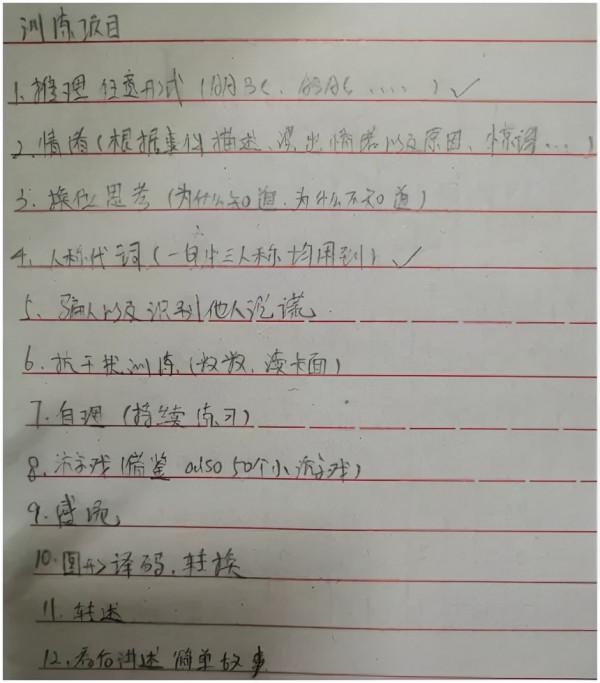 训练项目
1. 推理 任意形式 ( ..... ) ✓
2. 情绪(根据事件描述、情绪以及原因、...)
3. 换位思考(为什么知道、为什么不知道)
4. 人称代词(一二三人称均用到) ✓
5、骗人以及识别他人说谎
6. 抗干扰训练(数数、读卡面)
7. 自理(持续练习)
8. 游戏(借鉴 also 50个小游戏)
9.
10. 图形译码、转换
11. 转述
12. 看后讲述 简单故事